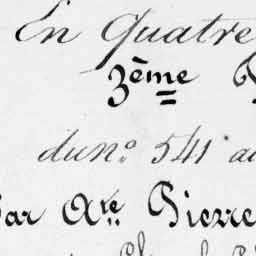 En Quatre
3ème
du n.º 541 au
Par Aте Pierre